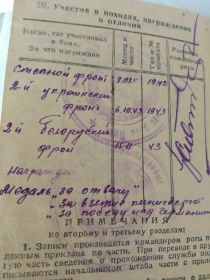 III. Участие в походах, награждения
и отличия
Когда, где участвовал
в боях.
За что награжден
Месяц и
число
Степной фронт 9.03 1943
2-й украинский
фронт 6.10.43 1943
2-й Белорусский
фрон 15.11 43
Награды
Медаль, за отвагу"
„За взятие кенигсберга"
за победу над германией
ПРИМЕЧАНИЯ
ко второму и третьему разделам:
1. Записи производятся командиром роты
данным приказов по части. При переводе в
тую часть сведения о прохождении службы
писываются начальником штаба части с